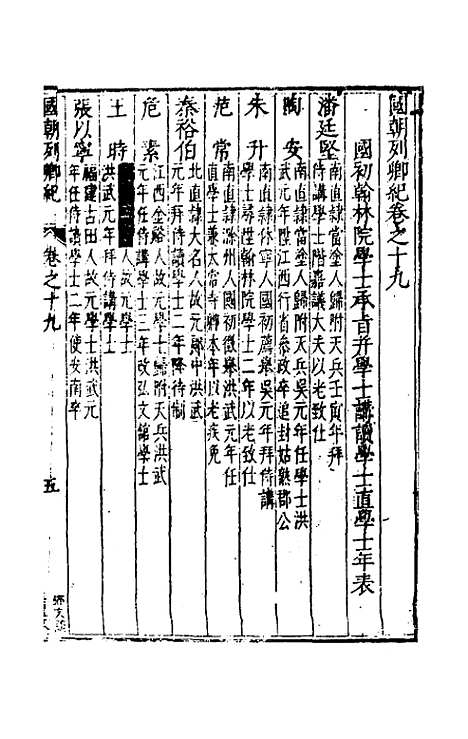 國朝列卿紀卷之十九
國初翰林院學士承旨并學士講讀學士直學士年表
潘廷堅
南直隸當塗人歸附天兵壬寅年拜
侍講學士階嘉議大夫以老致仕
陶安
南直隸當塗人歸附天兵吳元年任學士洪
武元年陞江西行省參政卒追封姑熟郡公
朱升
南直隸休寧人國初薦舉吳元年拜侍講
學士尋陞翰林院學士二年以老致仕
范常
南直隸滁州人國初徵舉洪武元年任
直學士兼太常寺卿本年以老疾免
秦裕伯
北直隸大名人故元郎中洪武
元年拜侍讀學士二年降待制
危素
江西金谿人故元學士歸附天兵洪武
元年任侍講學士三年改弘文館學士
王時
人故元學士
洪武元年拜侍講學士
張以寧
福建古田人故元學士洪武元
年任侍讀學士二年使安南卒
國朝列卿紀
卷之十九
五